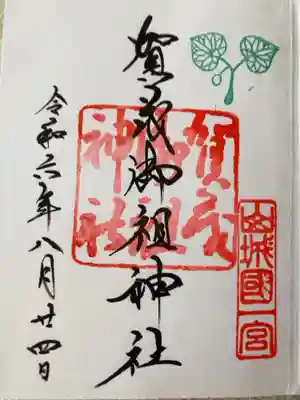 山城國一宮
賀茂御祖神社
賀茂御祖神社
令和六年八月廿四日